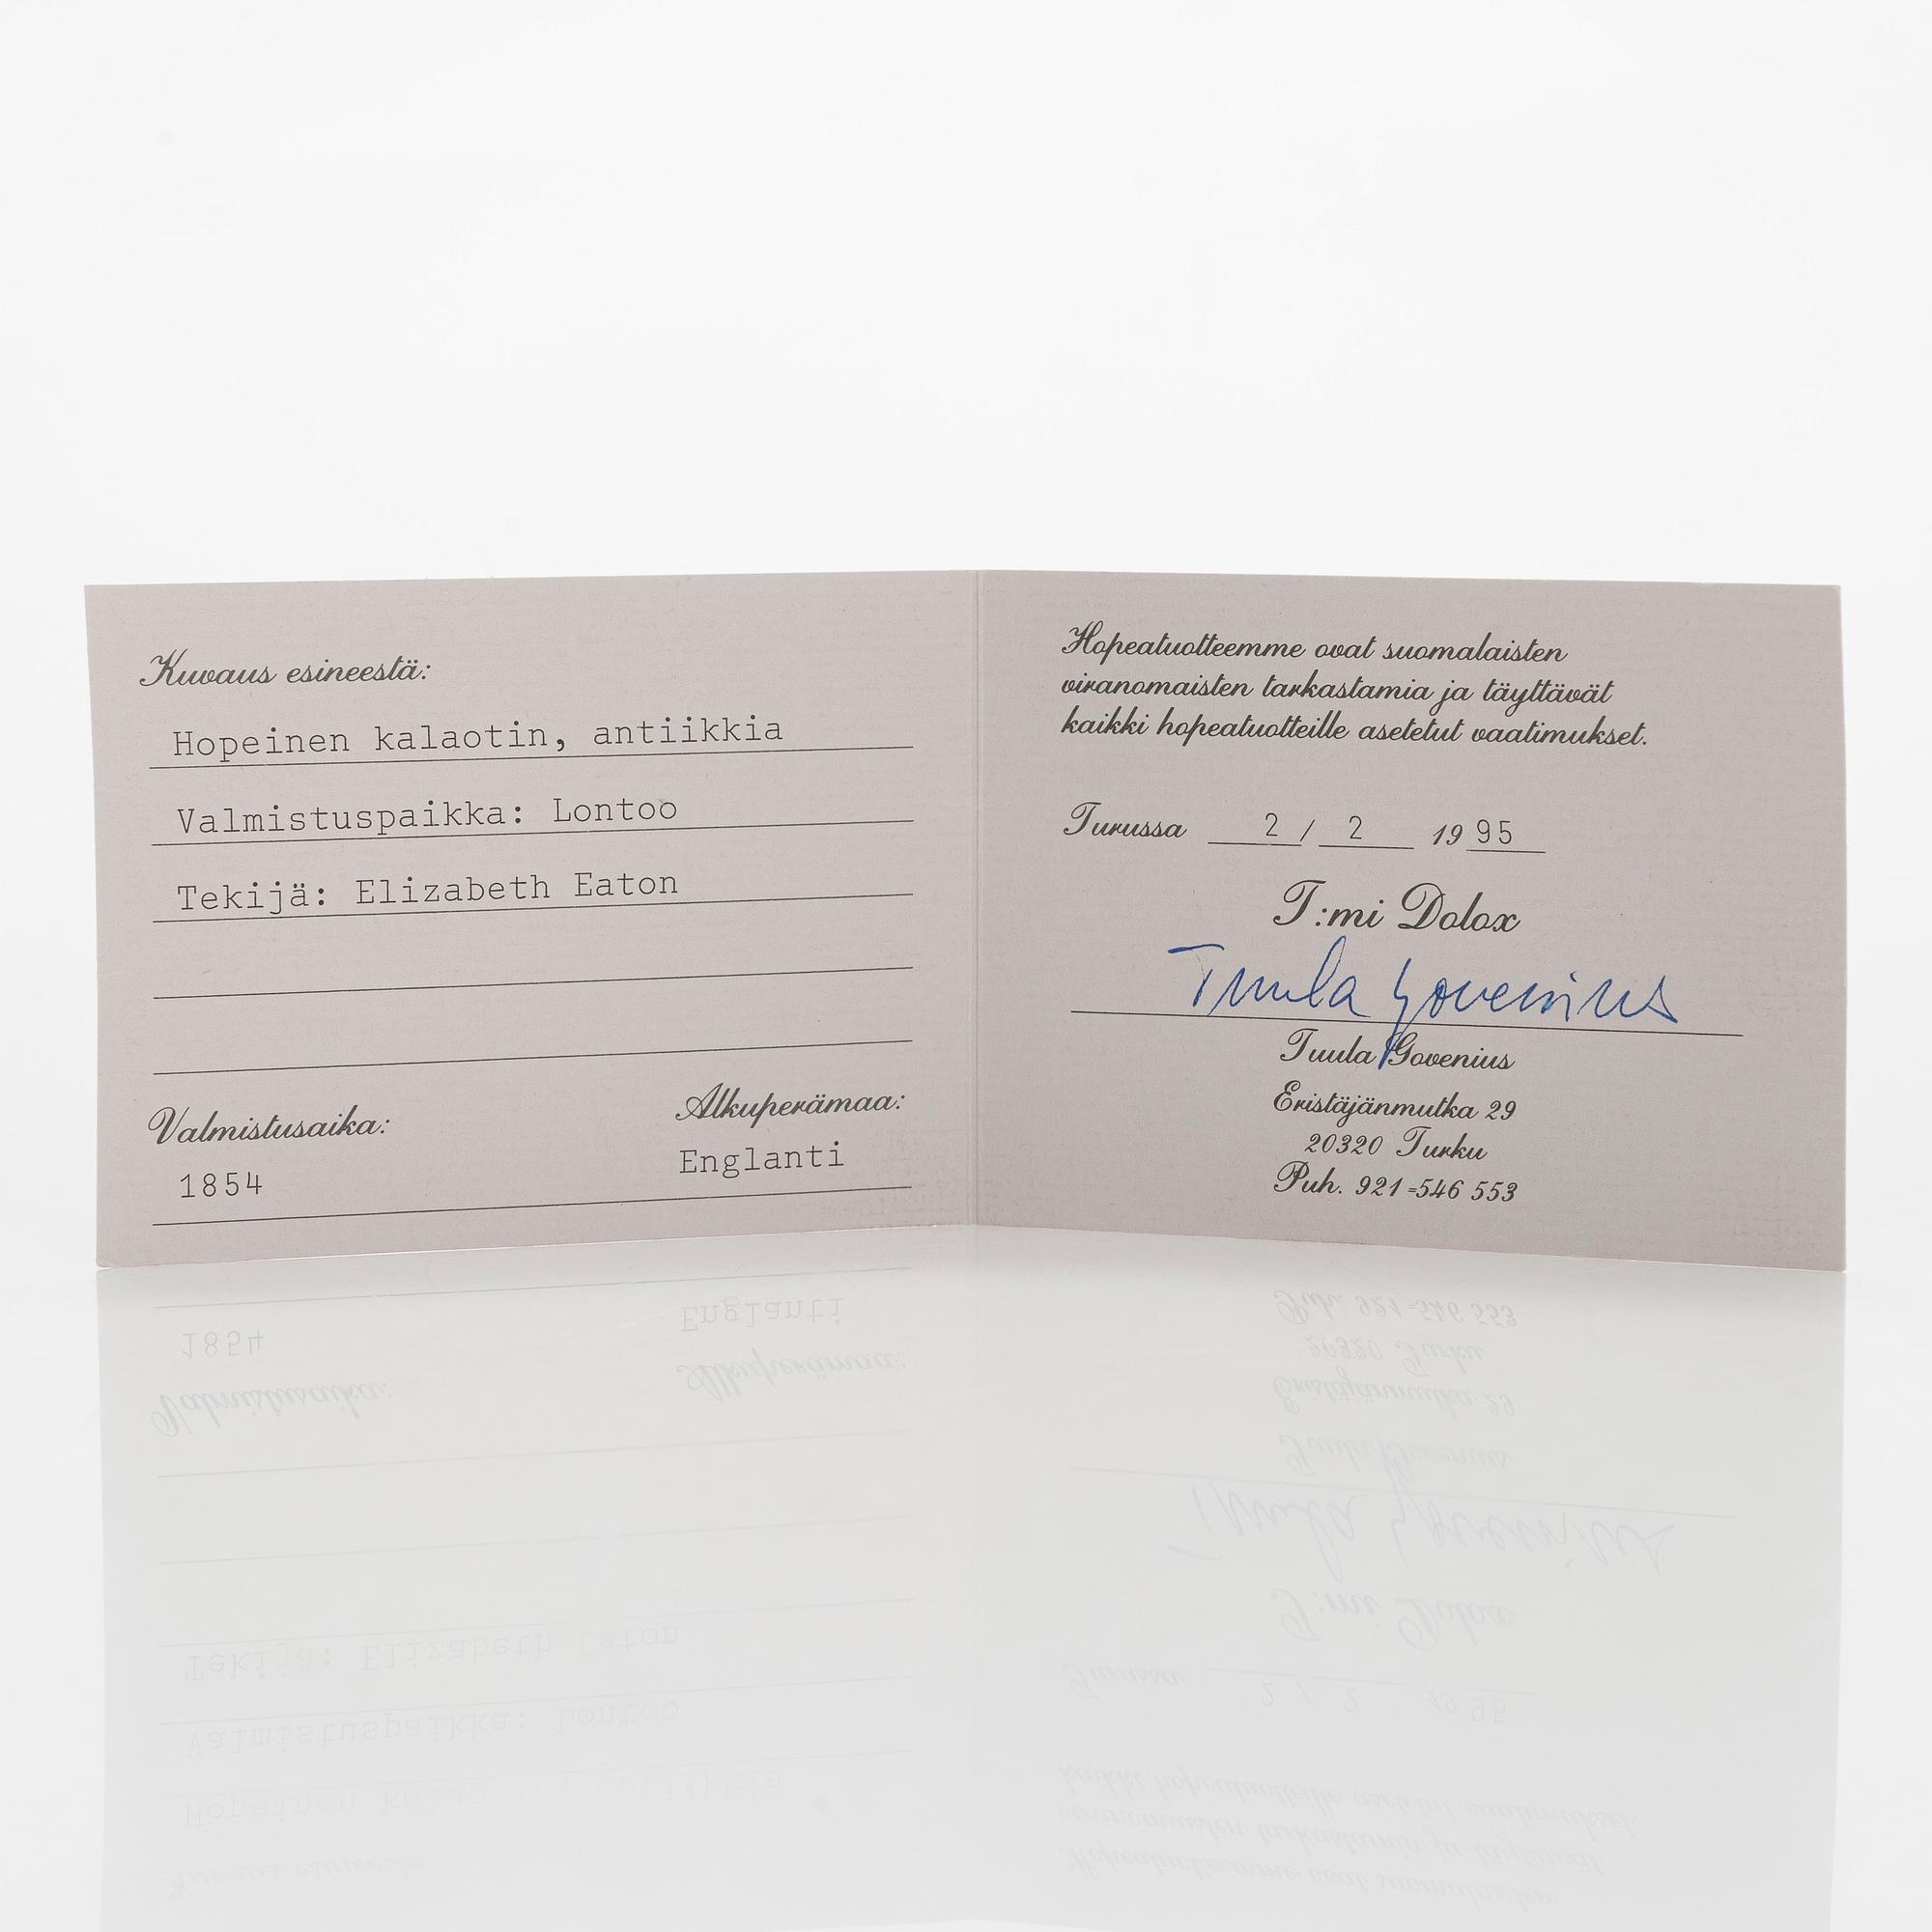 Kuvaus esineestä:
Hopeinen kalaotin, antiikkia
Valmistuspaikka: Lontoo
Tekijä: Elizabeth Eaton
Valmistusaika:
1854
Alkuperämaa:
Englanti
Hopeatuotteemme ovat suomalaisten
viranomaisten tarkastamia ja täyttävät
kaikki hopeatuotteille asetetut vaatimukset.
Turussa 2 / 2 1995
T:mi Dolox
Tuula Govenius
Tuula Govenius
Eristäjänmutka 29
20320 Turku
Puh. 921-546 553